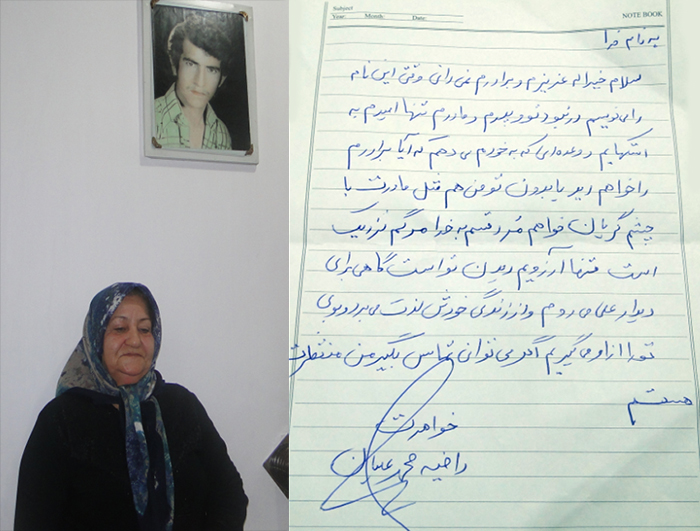 Subject
Year: Month: Date: NOTE BOOK
به نام خدا
سلام خیراله عزیزم و برادرم نمی دانی وقتی این نامه
را می نویسم در نبود تو و پدرم و مادرم تنها امیدم به
اشکهایم و وعده ای که به خودم می دهم که آیا برادرم
را خواهم دید یا بدون تو من هم مثل مادرت با
چشم گریان خواهم مرد قسم به خدا مرگم نزدیک
است تنها آرزویم دیدن تو است گاهی برای
دیدار علی می روم و از زندگی خودش لذت می برد و بوی
تو را از او می گیرم اگر می توانی تماس بگیر من منتظرت
هستم
خواهرت
راضیه محمدعلیان